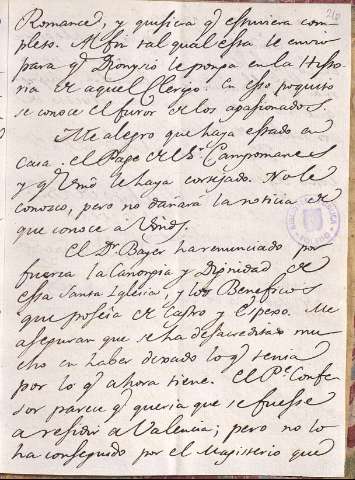 Romance, y quisiera q̃ estuviera com-
pleto. Al fin tal qual essta le envio
para q̃ Dionysio le ponga en la Histo-
ria de aquel Clerigo. En esso poquito
se conoce el furor de los apasionados.
Me alegro que haya estado en
casa el Page de Sr. Campomanes
y q̃ Vmd le haya cortejado. No le
conozco, pero no dañará la noticia de
que conoce a Vmds.
El Dr. Bayer ha renunciado por
fuerza la Canongia y Dignidad de
essa Santa Iglesia, y los Beneficios
que posseia de Castro y Espexo. Me
aseguran que se ha desacreditado mu-
cho en haber dexado lo q̃ tenia
por lo q̃ ahora tiene. El Pe. Confe-
sor parece q̃ queria que se fuesse
a residir a Valencia; pero no lo
ha conseguido por el Magisterio que